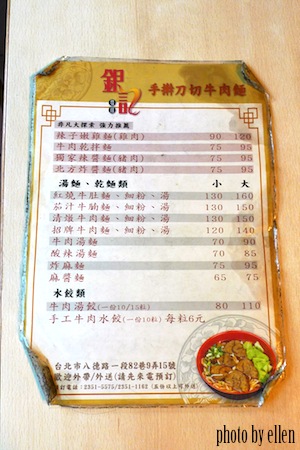 銀記
手擀刀切牛肉麵
非凡大探索 強力推薦
辣子嫩雞麵(雞肉) 90 120
牛肉乾拌麵 75 95
獨家辣醬麵(豬肉) 75 95
北方炸醬麵(豬肉) 75 95
湯麵、乾麵類 小 大
紅燒牛肚麵、細粉、湯 130 160
茄汁牛腩麵、細粉、湯 130 150
清燉牛肉麵、細粉、湯 130 150
招牌牛肉麵、細粉、湯 120 140
牛肉湯麵 70 90
酸辣湯麵 70 85
炸麻麵 75 95
麻醬麵 65 75
水餃類
牛肉湯餃(一份10/15粒) 80 110
手工牛肉水餃(一份10粒) 每粒6元
台北市八德路一段82巷9弄15號
歡迎外帶/外送(請先來電預訂)
訂電話:2351-5575/2351-1162
photo by ellen